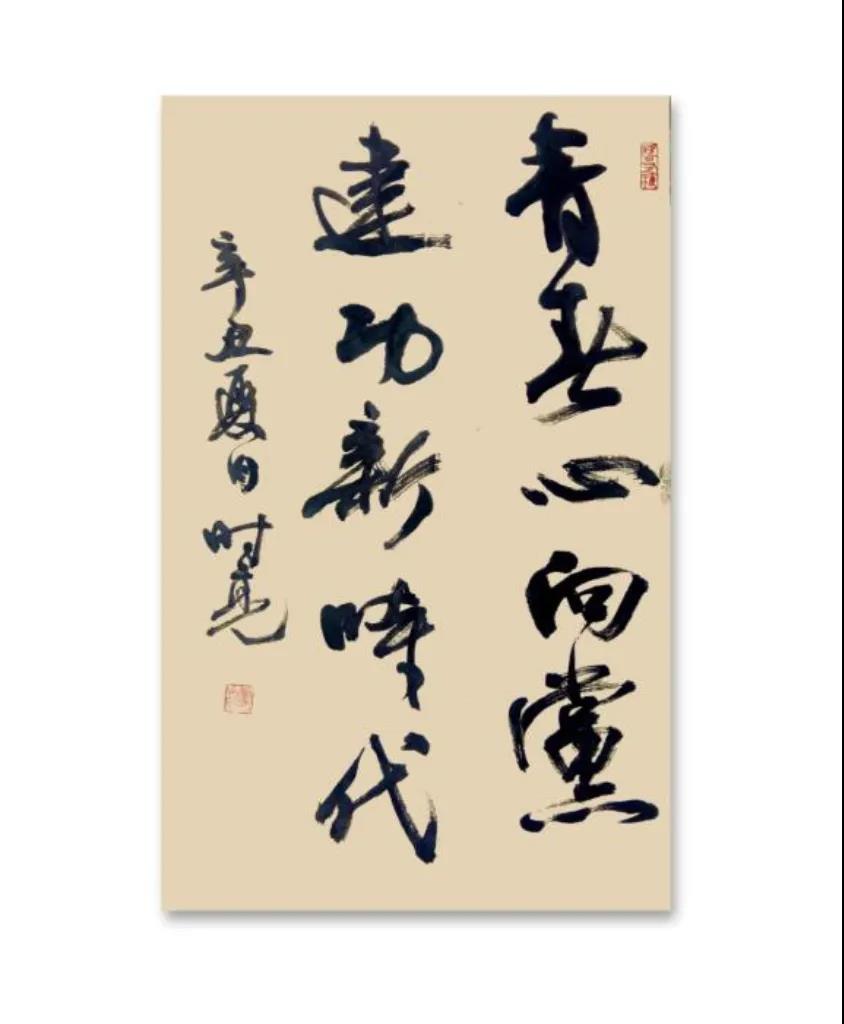 青春心向黨
建功新時代
辛丑夏日时亮